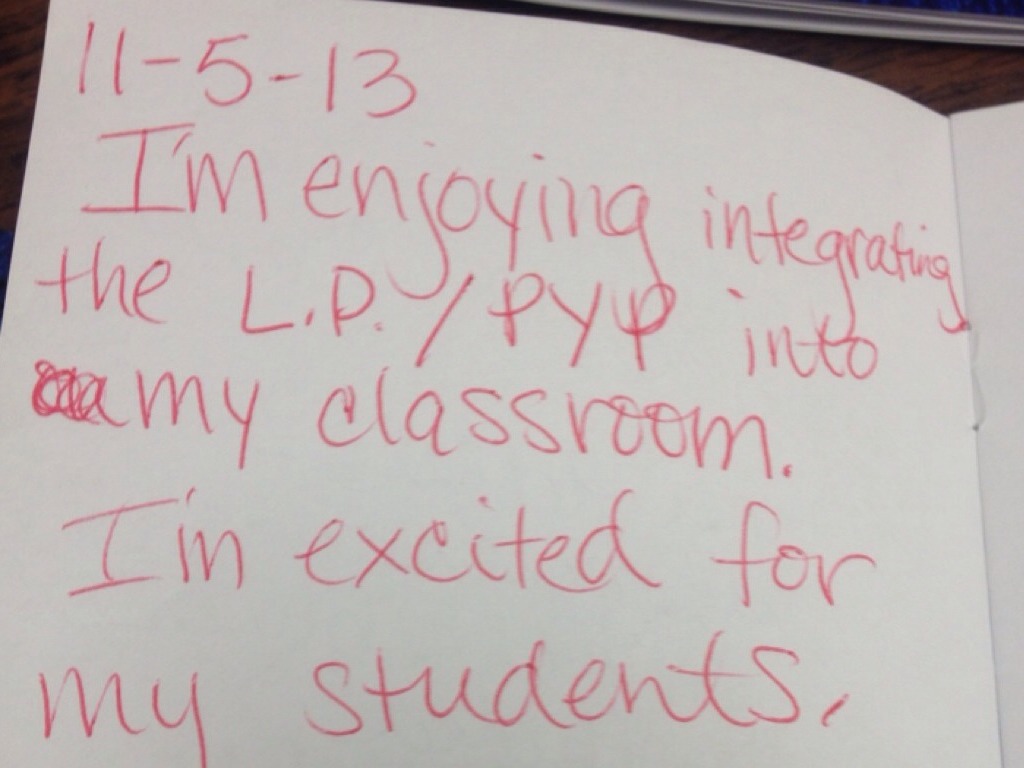 11-5-13
I'm enjoying integrating
the L.P./PYP into
my classroom.
I'm excited for
my students.